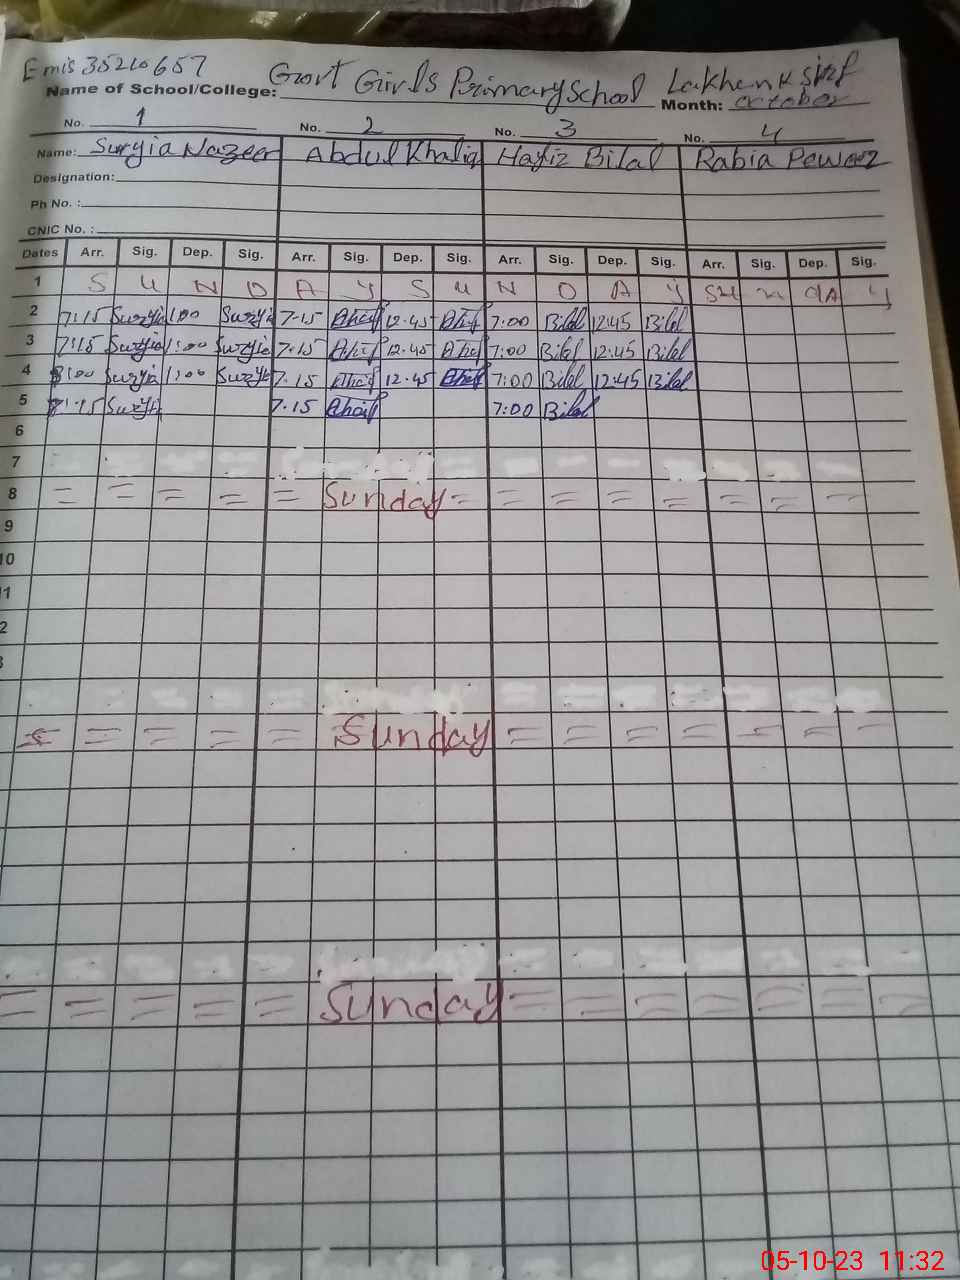 Emis 35210657
Name of School/College: Govt Girls Primary School Lakhenk
Month: October
No. 1 No. 2 No. 3 No. 4
Name: Surgia Nazeer Abdul Khaliq Hafiz Bilal Rabia
Designation:
Ph No. :
CNIC No. :
Dates Arr. Sig. Dep. Sig. Arr. Sig. Dep. Sig. Arr. Sig. Dep. Sig. Arr. Sig. Dep. Sig.
1 S U N D A Y S U N D A Y SU n dA y
2 7:15 Surgia 1:00 Surgia 7-15 12-45 7:00 Bilal 12:45 Bilal
3 7:15 Surgia 1:00 Surgia 7-15 12-45 7:00 Bilal 12:45 Bilal
4 8:00 Surgia 1:00 Surgia 7-15 12-45 7:00 Bilal 12:45 Bilal
5 Surgia 7-15 7:00 Bilal
6
7
8 = = = = = Sunday = = = = = = = =
9
10
= = = = = Sunday = = = = = = =
= = = = = Sunday = = = = = = =
05-10-23 11:32